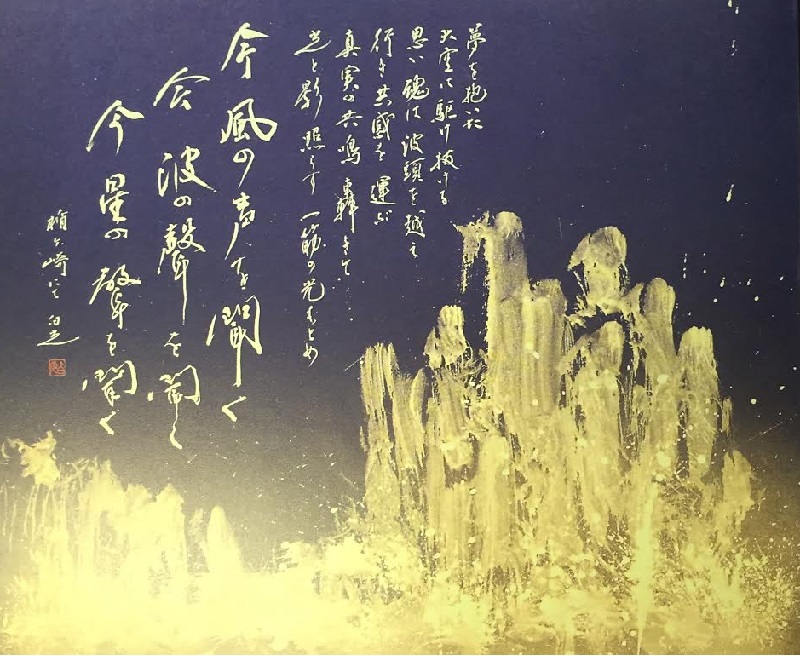 夢を抱いた
大空に駆け抜ける
思い 魂は 波頭を 越え
行き 共感を 運ぶ
真実の共鳴 轟きて
光と影 照らす 一筋の光もとめ
今 風の声を聞く
今 波の聲を聞く
今 星の聲を聞く